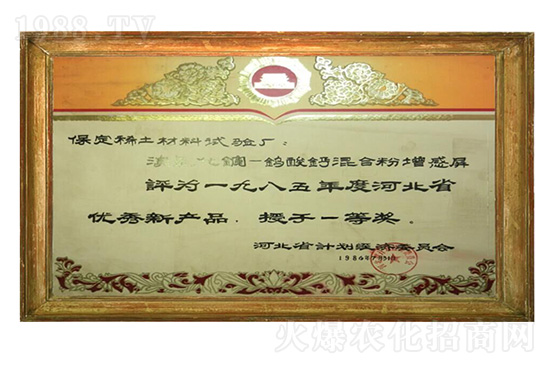 1988.TV
保定稀土材料试验厂:
鑭一钨酸鈣混合粉增感屏
評为一九八五年度河北省
优秀新产品.授于一等奖。
河北省計划经济委员会
火爆农化招商网